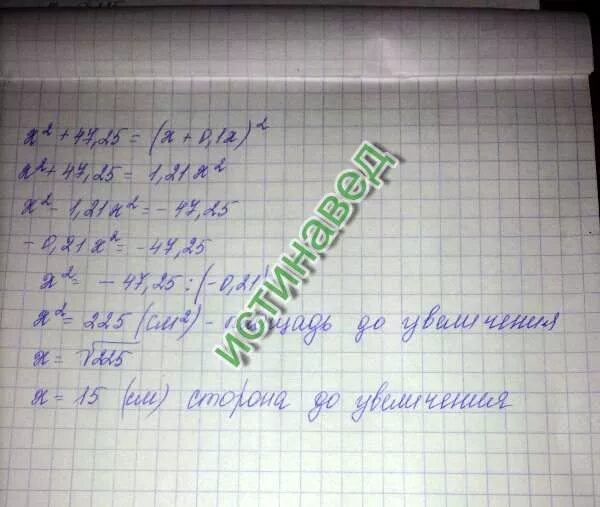 x² + 47,25 = (x + 0,1x)²
x² + 47,25 = 1,21x²
x² - 1,21x² = - 47,25
- 0,21x² = - 47,25
x² = - 47,25 : (-0,21)
x² = 225 (см²) - площадь до увеличения
x = √225
x = 15 (см) сторона до увеличения
истинавед